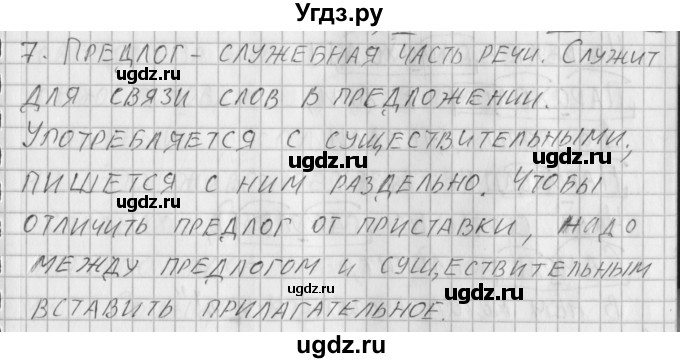 Угдз.ру
7. ПРЕДЛОГ - СЛУЖЕБНАЯ ЧАСТЬ РЕЧИ. СЛУЖИТ
ДЛЯ СВЯЗИ СЛОВ В ПРЕДЛОЖЕНИИ.
УПОТРЕБЛЯЕТСЯ С СУЩЕСТВИТЕЛЬНЫМИ,
ПИШЕТСЯ С НИМ РАЗДЕЛЬНО. ЧТОБЫ
ОТЛИЧИТЬ ПРЕДЛОГ ОТ ПРИСТАВКИ, НАДО
МЕЖДУ ПРЕДЛОГОМ И СУЩЕСТВИТЕЛЬНЫМ
ВСТАВИТЬ ПРИЛАГАТЕЛЬНОЕ.
ugdz.ru
ugdz.ru
ugdz.ru
ugdz.ru
ugdz.ru
ugdz.ru
ugdz.ru
ugdz.ru
ugdz.ru
ugdz.ru